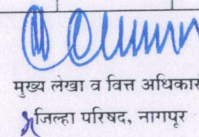 मुख्य लेखा व वित्त अधिकार
जिल्हा परिषद, नागपूर